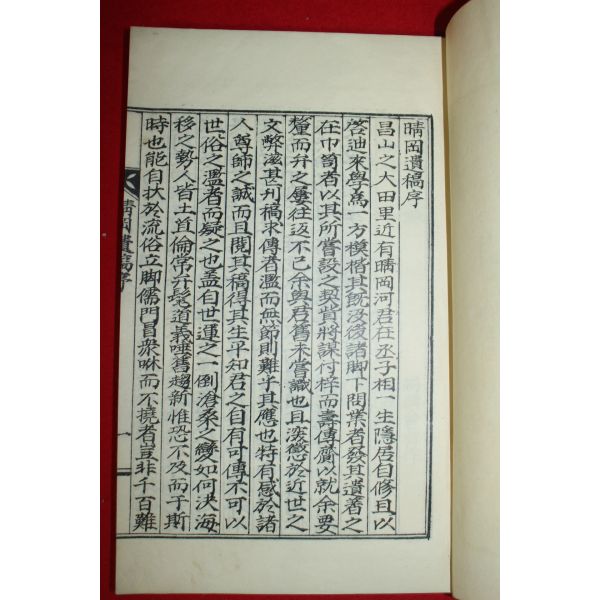 晴岡遺稿序
昌山之大田里近有晴岡河君在丞子相一生隱居自修且以
啓迪來學爲一方模楷其旣沒後諸脚下問業者發其遺著之
在巾笥者以其所嘗設之契貲將謀付梓而壽傳齎以就余要
釐而弁之屢往返不已余與君舊未嘗識也且深懲於近世之
文弊滋甚刊稿求傳者濫而無節則難乎其應也特有感於諸
人尊師之誠而且閱其稿得其生平知君之自有可傳不可以
世俗之濫者而疑之也盖自世運之一倒滄桑之變如何決海
移之勢人皆土苴倫常弁髦道義唾舊趨新惟恐不及而于斯
時也能自拔於流俗立脚儒門冒衆咻而不撓者豈非千百難
晴岡遺稿序
一